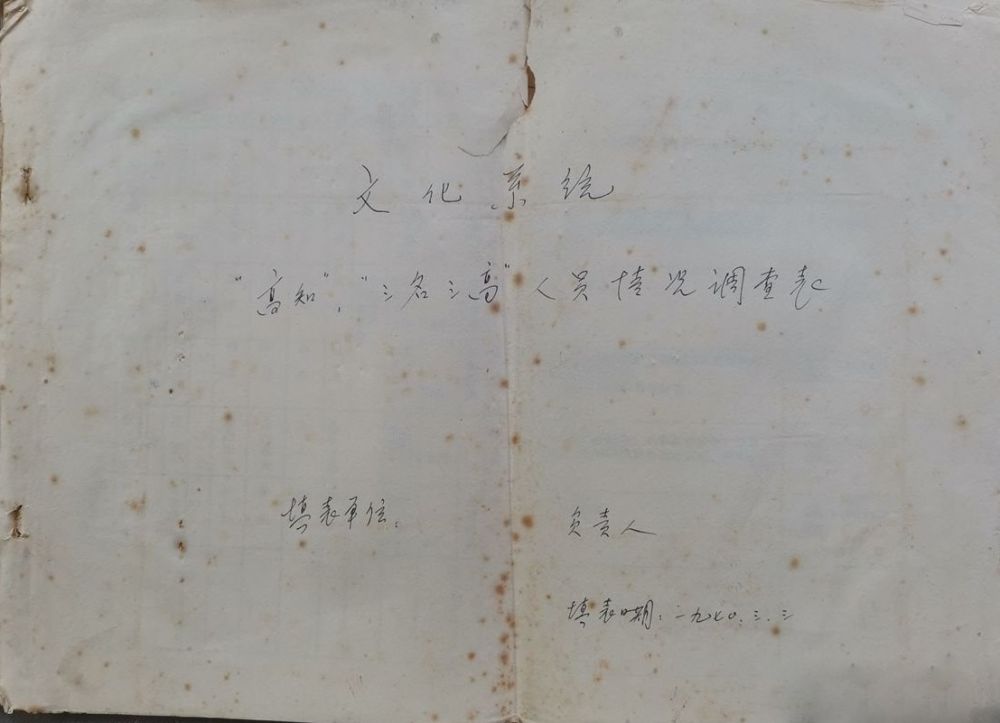 文化系统
"高知"、"三名三高"人员情况调查表
填表单位：
负责人
填表日期：一九七〇.三.三